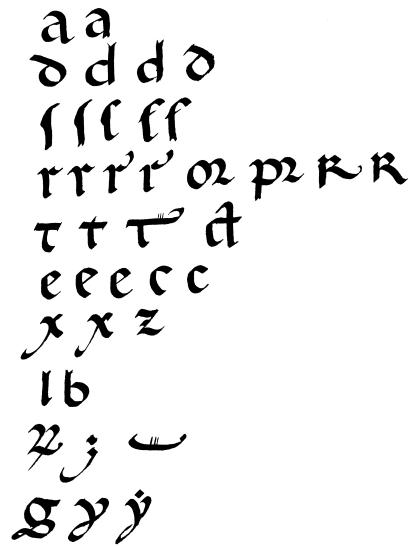 a a
ꝺ d d ꝺ
ſ ſ ſ f f
r r r r oꝛ pꝛ R R
t t t ct
e e e c c
x x z
l b
;
g y ẏ